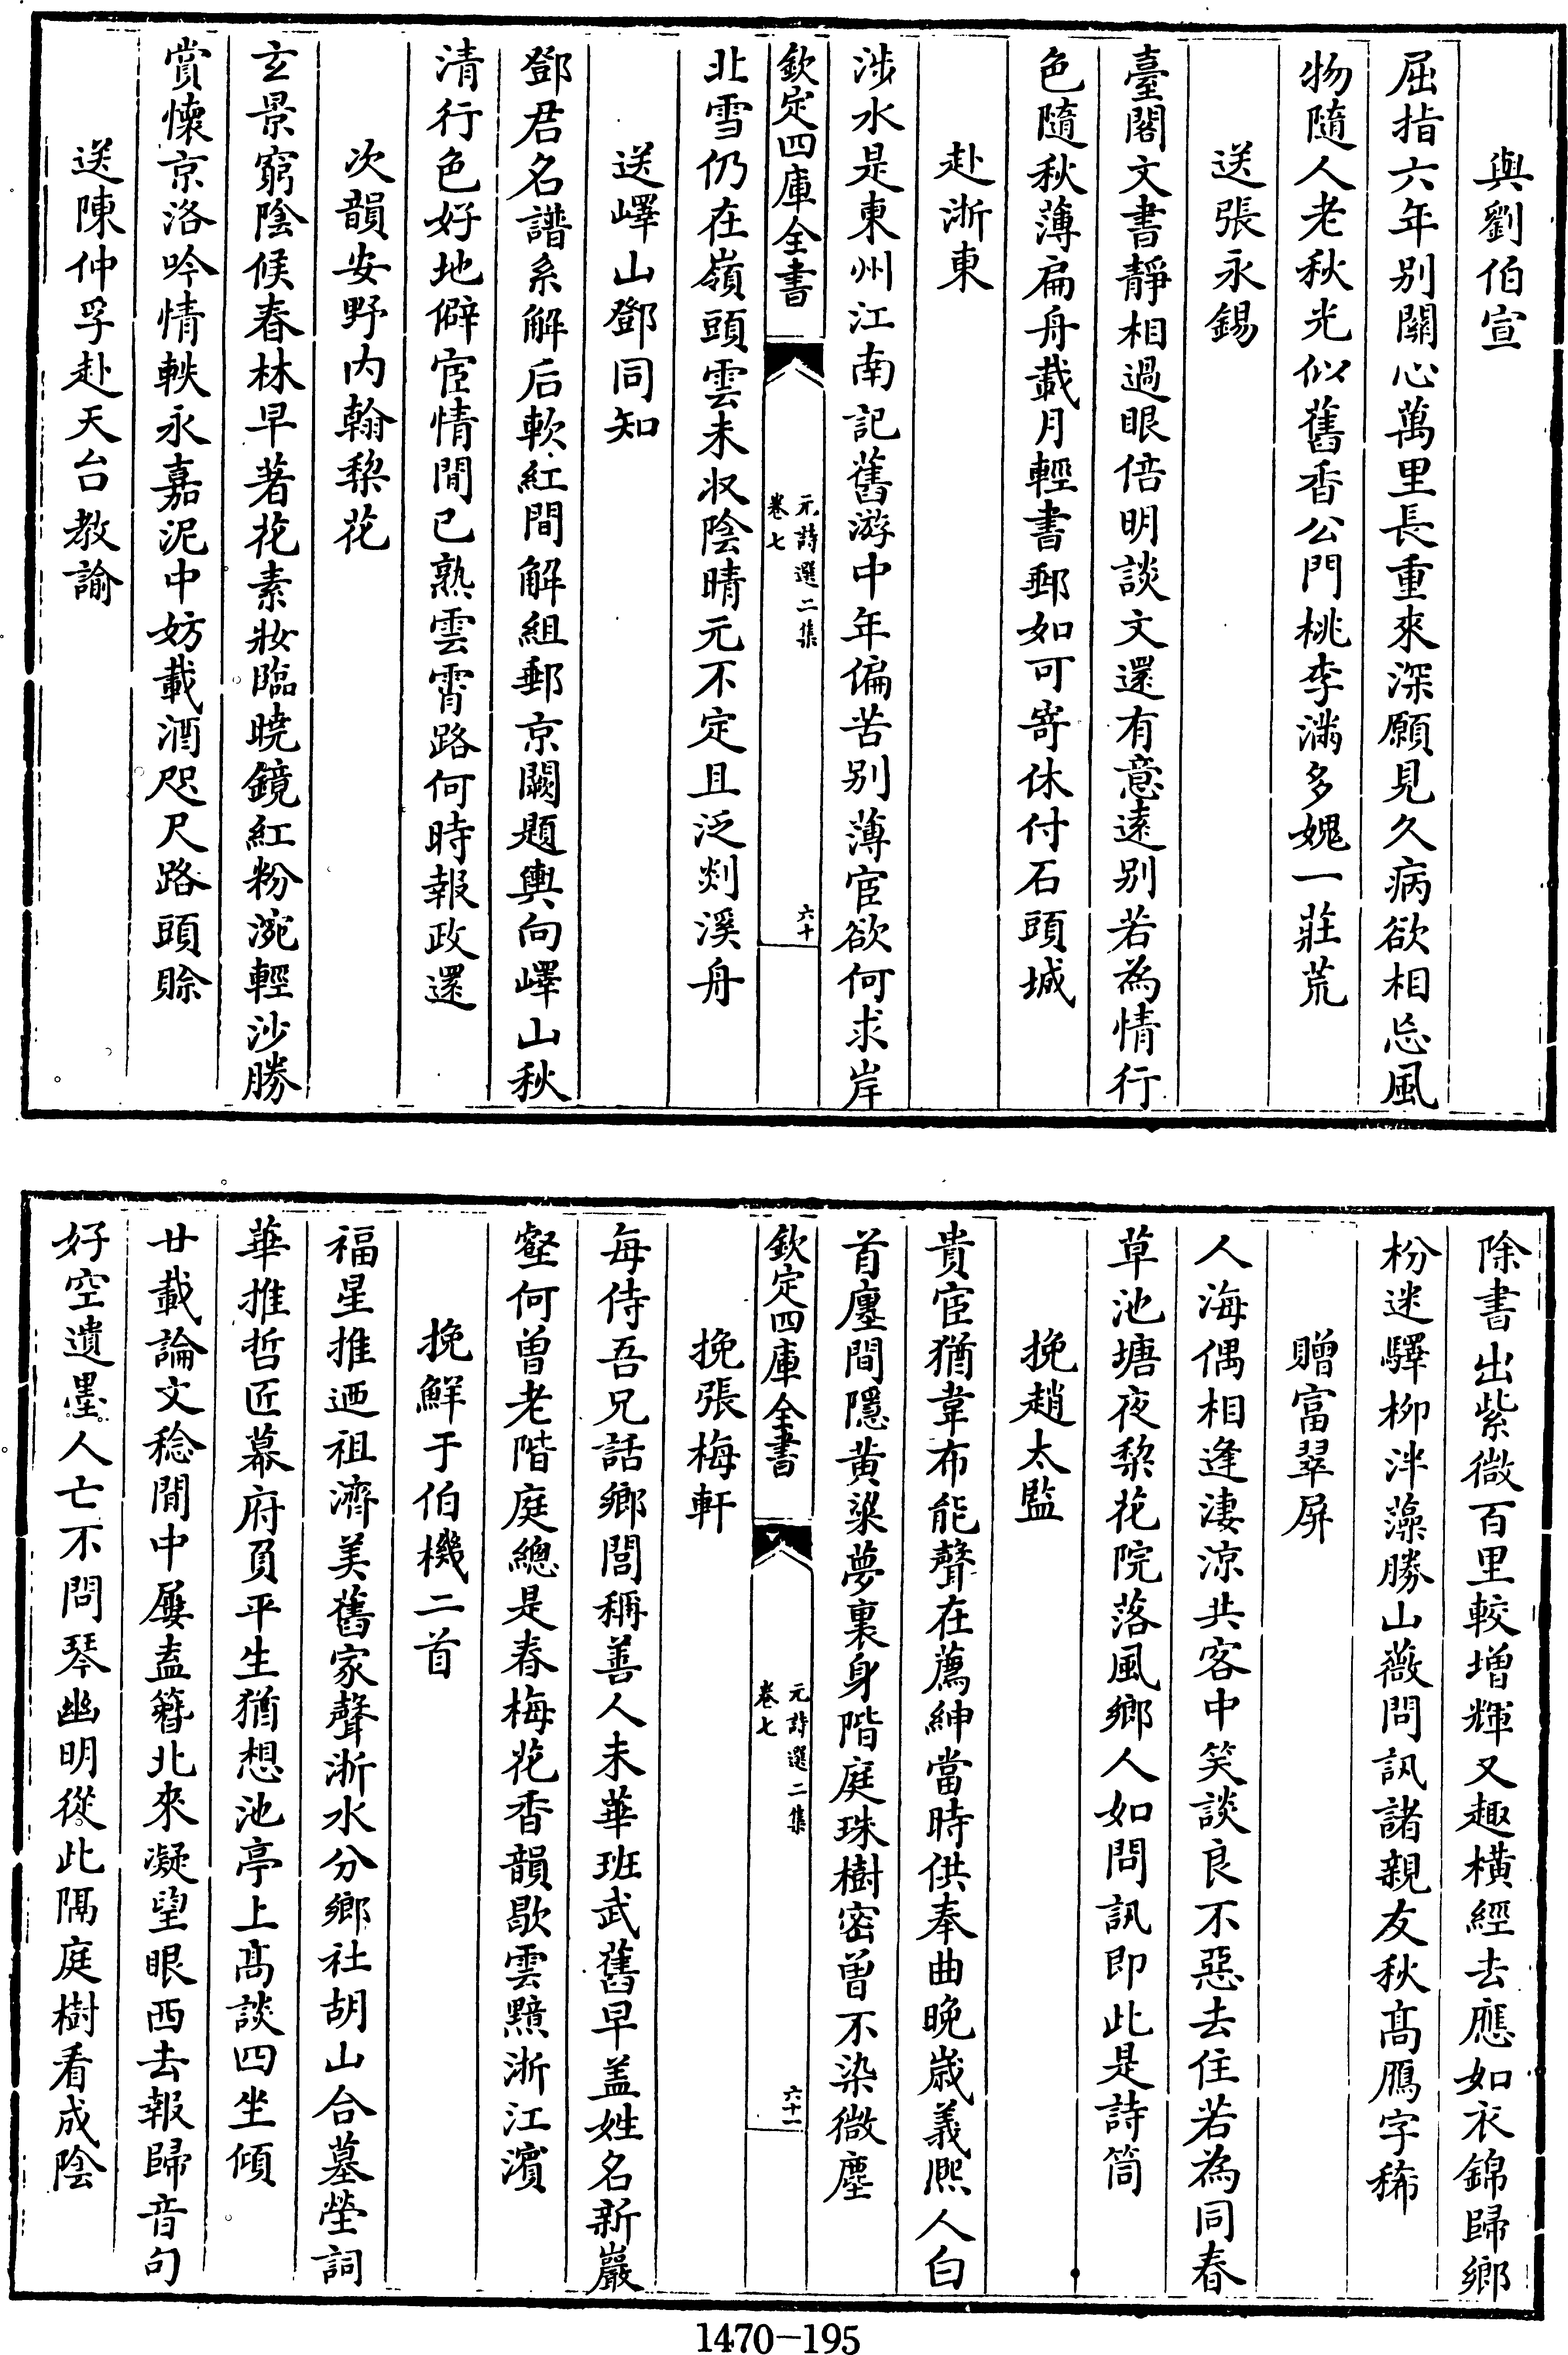 與劉伯宣
屈指六年别關心萬里長重來深願見久病欲相忘風
物隨人老秋光似舊香公門桃李滿多媿一莊荒
送張永錫
臺閣文書靜相過眼倍明談文還有意遠别若為情行
色隨秋薄扁舟載月輕書郵如可寄休付石頭城
赴浙東
涉水是東州江南記舊游中年偏苦别薄宦欲何求岸
欽定四庫全書
元詩選二集
卷七
六十
北雪仍在嶺頭雲未収陰晴元不定且泛剡溪舟
送嶧山鄧同知
鄧君名譜系解后軟紅間解組郵京闕題輿向嶧山秋
清行色好地僻宦情閒已熟雲霄路何時報政還
次韻安野内翰棃花
玄景窮陰候春林早著花素妝臨曉鏡紅粉涴輕沙勝
賞懷京洛吟情軼永嘉泥中妨載酒咫尺路頭賒
送陳仲孚赴天台教諭
除書出紫微百里較増輝又趣横經去應如衣錦歸鄉
枌迷驛柳泮藻勝山薇問訊諸親友秋髙鴈字稀
贈富翠屏
人海偶相逢淒涼共客中笑談良不惡去住若為同春
草池塘夜棃花院落風鄉人如問訊即此是詩筒
挽趙太監
貴宦猶韋布能聲在薦紳當時供奉曲晚嵗義熈人白
首廛間隱黄粱夢裏身階庭珠樹密曽不染微塵
欽定四庫全書
元詩選二集
卷七
六十一
挽張梅軒
每侍吾兄話鄉閭稱善人未華班武舊早盖姓名新巖
壑何曽老階庭總是春梅花香韻歇雲黯浙江濱
挽鮮于伯機二首
福星推迺祖濟美舊家聲浙水分鄉社胡山合墓塋詞
華推哲匠幕府負平生猶想池亭上髙談四坐傾
廿載論文稔閒中屢盍簪北來凝望眼西去報歸音句
好空遺墨人亡不問琴幽明從此隔庭樹看成陰
1470-195